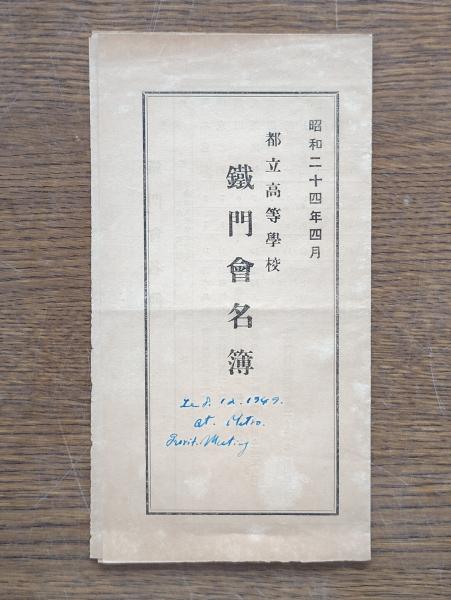 昭和二十四年四月
都立高等學校
鐵門會名簿
12. 1949.
at. Metro.
Meeting